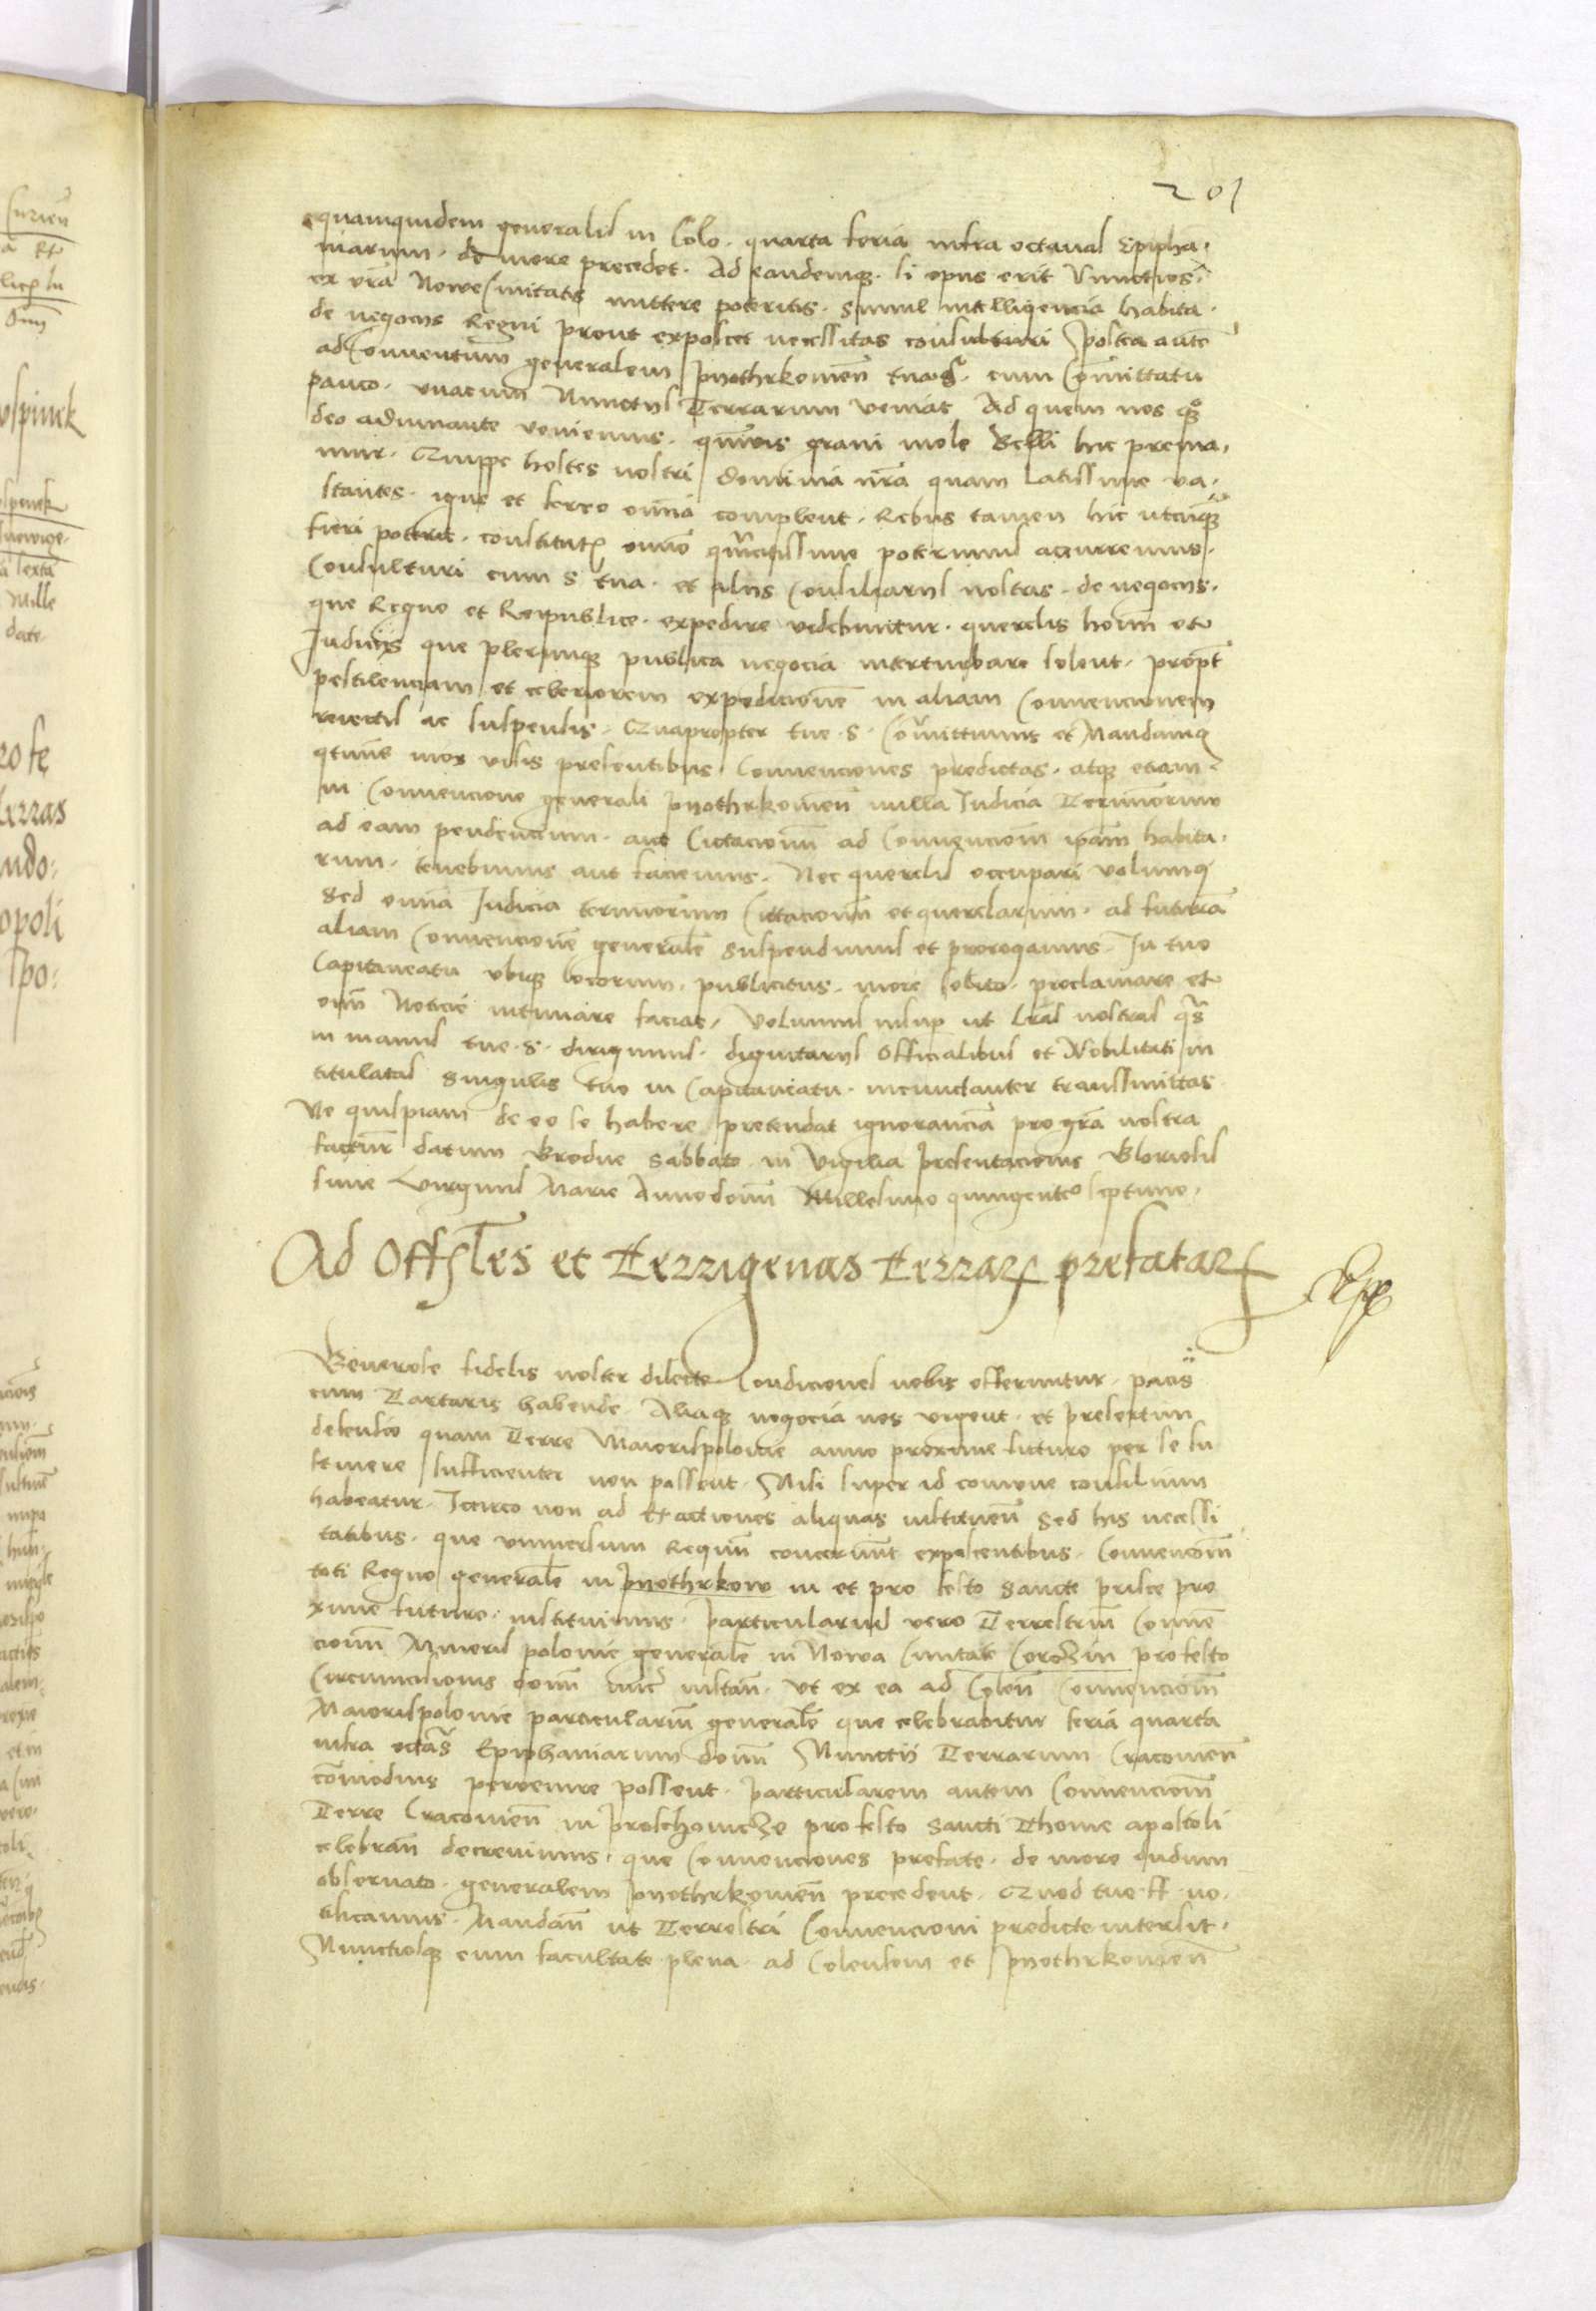 201
quamquidem generalis in Colo. quarta feria infra octavas Epipha,
niarum. de more precedet. Ad eandemq. si opus erit Nunctios.
ex vrā Nove Civitatis mittere poteritis. simul intelligencia habita.
de negocys Regni prout exposcet necessitas consulturi postea autē
ad Conventum generalem pyothrkovien̄ tua s. cum Comittatu
pauco. unacum Nunctys Terrarum veniat Ad quem nos qq̄
deo adiuvante veniemus. qmvis gravi mole Belli hic prema,
mur. Quippe hostes nostri dominia nr̄a quam latissime va,
stantes. igne et ferro omnia complent. Rebus tamen hic utcūq
fieri poterit. constitutis omnino q̄mcitissime poterimus accurremus.
Consulturi cum S tua. et alys Consiliarys nostris. de negocys.
que Regno et Reipublice. expedire videbuntur. querelis hoīm et
Iudicys que plerumq publica negocia interturbare solent. propt
pestilenciam et celeriorem expedicionē in aliam Convencionem
reiectis ac suspensis. Quapropter tue S. Comittimus et Mandamq
qtinus mox visis presentibus. Convenciones predictas. atq etiam
in Convencione generali pyothrkovien̄ nulla Iudicia Terminorum
ad eam pendencium. aut Cittacionū ad Convencioīm ipam habita,
rum. tenebimus aut faciemus. Nec querelis occupari volumq
Sed omnia Iudicia terminorum Cittacionū et querelarum. ad futurā
aliam Convencionē generalē suspendimus et prorogamus. In tuo
Capitaneatu ubiq locorum. publicitus. more solito. proclamare et
oīm Noticie intimare facias. Volumus insup ut Lrās nostras qs
in manus tue S. dirigimus. dignitarys Officialibus et Nobilitati in
titulatas singulis tuo in Capitaneatu. incunctanter transmittas
Ne quispiam de eo se habere pretendat ignoranciā pro grā nostra
factur̄ datum Grodne Sabbato in Vigilia presentacionis Gloriosis
sime Virginis Marie Anno domī Millesimo quingentēo septimo.
Ad Offles et Terrigenas Terrar prefatar
Generose fidelis noster dilecte Condiciones nobis offeruntur. pacis
cum Tartaris habende. Aliaq negocia nos urgent. et presertim
defensio quam Terre Maiorispolonie anno proxime futuro per se su
stinere sufficienter non possent. Nisi super id comune consilium
habeatur. Iccirco non ad Exactiones aliquas instituen̄ Sed his necessi
tatibus. que universum Regnū concernūt exposcentibus. Convencōīm
toti Regno generalē in pyothrkow in et pro festo Sancte prisce pro
xime futuro. instituimus. particularius vero Terrestriū Conven
cionū Minoris polonie generalē in Nowa Civitate Corczin pro festo
Circumcisionis domī nūc instan̄. Ut ex ea ad Colen̄ Convencionīm
Maiorispolonie particulariū generalē que celebrabitur feria quarta
infra octas Epiphaniarum domī Nunctii Terrarum Cracovien
cōmodius pervenire possent. particularem autem Convencionīm
Terre Cracovien̄ in proschovicze pro festo Sancti Thome apostoli
celebran̄ decrevimus. que Convenciones prefate. de more dudum
observato. generalem pyothrkovien̄ precedent. Quod tue F. no,
tificamus. Mandan̄ ut Terrestri Convencioni predicte intersit.
Nunctiosq cum facultate plena. ad Colensem et pyothrkovien̄